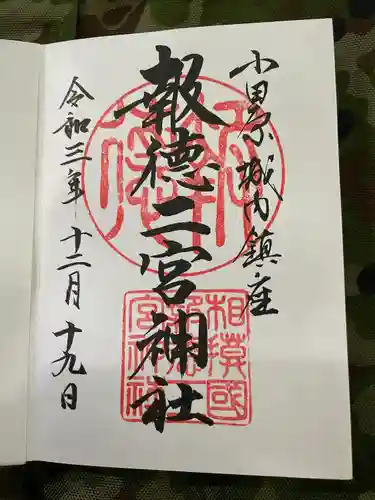 小田原城内鎮座
報徳二宮神社
令和三年十二月十九日
相模國
報徳二
宮神社